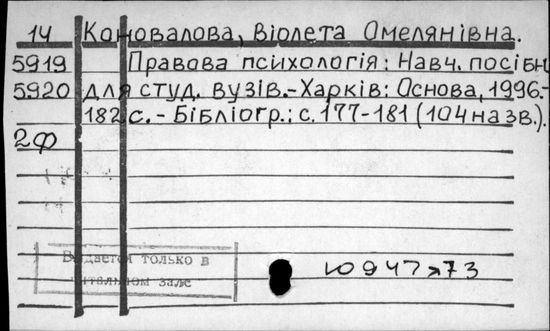 14 Коновалова, Віолета Омелянівна.
5919 Правова психологія: Навч. посібн.
5920 для студ. вузів.-Харків: Основа, 1996.-
182 с. - Бібліогр.: с. 177-181 (104 назв.).
2ф
Выдается только в
читальном зале
ю 947 я 73